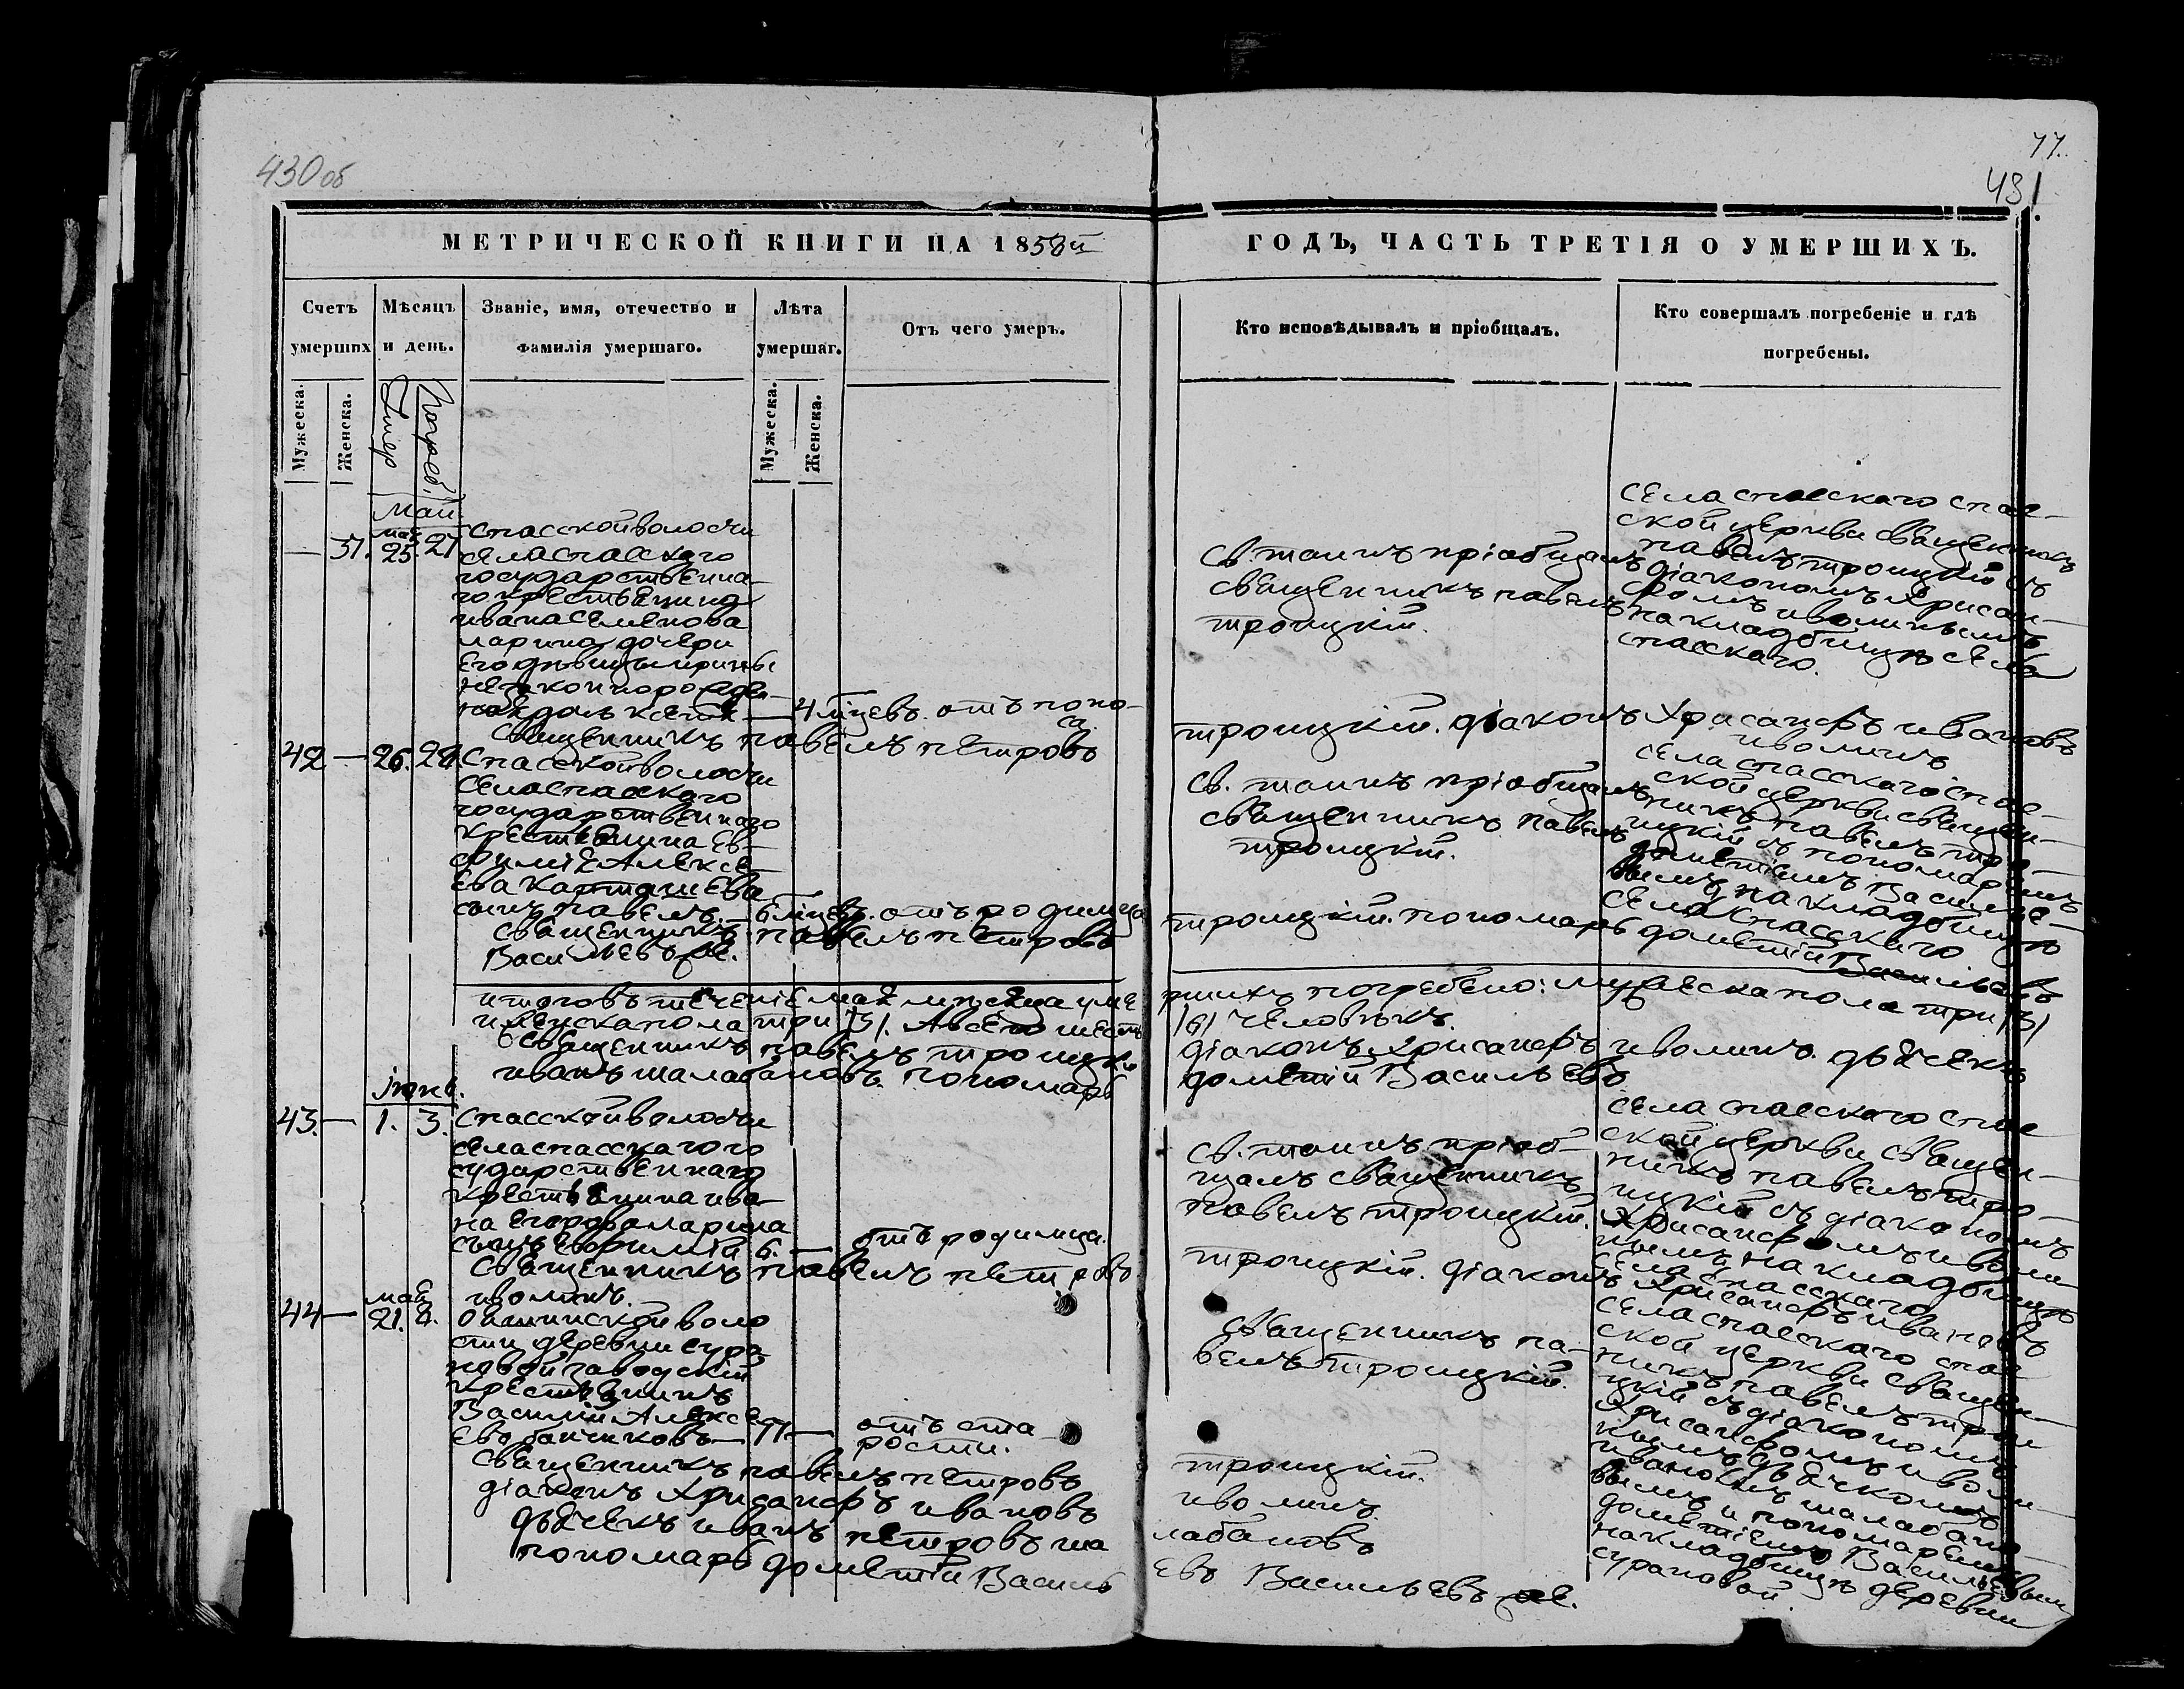 430 об
77.
431
МЕТРИЧЕСКОЙ КНИГИ НА 1858й
ГОДЪ, ЧАСТЬ ТРЕТІЯ О УМЕРШИХЪ.
Счетъ умершпх
Мѣсяцъ и день.
Званіе, имя, отечество и Фамилія умершаго.
Лѣта умершаг.
Отъ чего умеръ.
Кто исповѣдывалъ и пріобщалъ.
Кто совершалъ погребеніе и гдѣ погребены.
Мужеска.
Женска.
Умер
Погреб.
Мужеска.
Женска.
Май
— 37. 25. 27
спасской волости
села спасскаго
государственна-
го крестьянина
ивана семенова
ларина дочери
его дѣвицы ирины
незаконнорожден-
— 4 мцевъ. отъ поно-
са
св. таинъ пріобщалъ
священникъ павелъ
троицкій.
села спасскаго спас-
ской церкви священникъ
павелъ троицкій съ
діакономъ хрисан-
фомъ иволинымъ
на кладбищѣ села
спасскаго.
священникъ павелъ петровъ
троицкій. діаконъ хрисанфъ ивановъ
иволинъ
42 — 26. 28.
спасской волости
села спасскаго
государственнаго
крестьянина ев-
фиміѧ Алексе-
ева карташева
сынъ павелъ. — 6 мцевъ. отъ родимца
св. таинъ пріобщалъ
священникъ павелъ
троицкій.
села спасскаго спас-
ской церкви священ-
никъ павелъ тро-
ицкій съ пономаремъ
дометіемъ Василье-
вымъ на кладбищѣ
села спасскаго
священникъ павелъ петровъ
троицкій. пономарь дометій Васильевъ
Васильевъ же.
итого въ теченіе маѧ мѣсяца уме
ршихъ погребено: мужеска пола три /3/
и женска пола три /3/. А всего шесть
/6/ человѣкъ.
священникъ павелъ троицкій
діаконъ хрисанфъ иволинъ. дьѧчекъ
иванъ шалабановъ. пономарь
дометій Васильевъ
іюнь.
43. — 1. 3.
спасской волости
села спасскаго го
сударственнаго
крестьянина ива-
на егорова ларина
сынъ евфимій 6. — отъ родимца.
св. таинъ пріоб-
щалъ священникъ
павелъ троицкій.
села спасскаго спас
ской церкви священ-
никъ павелъ тро-
ицкій съ діакономъ
хрисанфомъ иволи-
нымъ на кладбищѣ
села спасскаго
священникъ павелъ петровъ
троицкій. діаконъ хрисанфъ ивановъ
иволинъ.
маѧ
44 — 21. 4.
воло
сти деревни сура-
новой заводскій
крестьянинъ
Василій Алексе
евъ 77 — отъ ста
рости.
священникъ па-
велъ троицкій.
села спасскаго спас
ской церкви священ-
никъ павелъ трои
цкій съ діакономъ
хрисанфомъ иволи-
нымъ дьѧчкомъ
иваномъ шалабано-
вымъ и пономаремъ
дометіемъ Васильевымъ
на кладбищѣ деревни
сурановой.
священникъ павелъ петровъ
троицкій.
діаконъ хрисанфъ ивановъ
иволинъ.
дьѧчекъ иванъ петровъ ша
лабановъ
пономарь дометій Василь
евъ Васильевъ же.